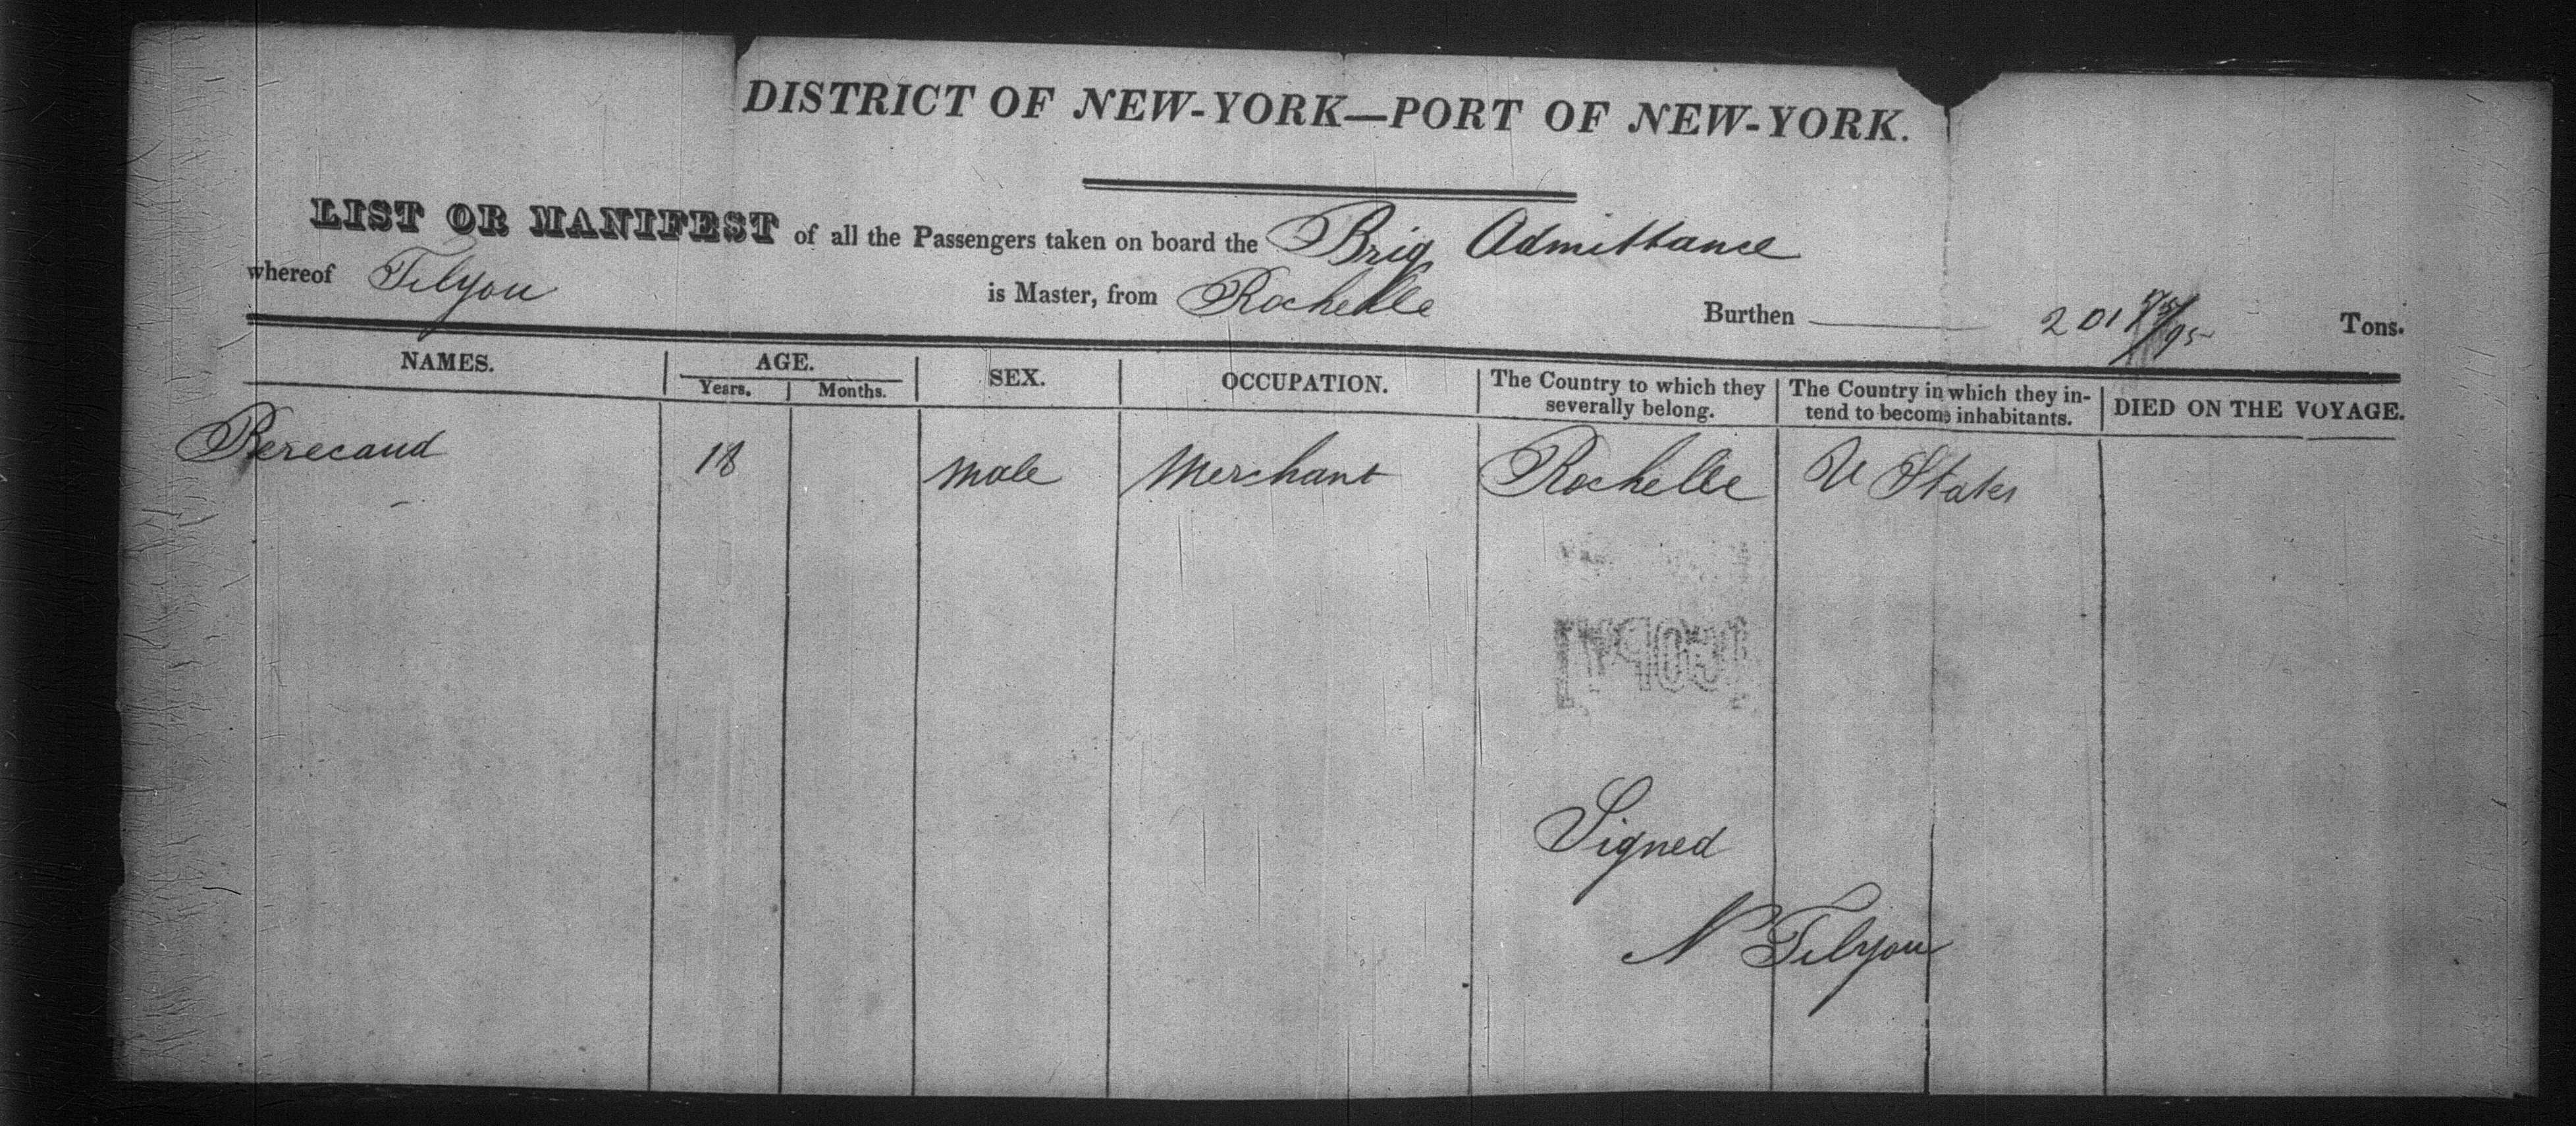 DISTRICT OF NEW-YORK—PORT OF NEW-YORK.
LIST OR MANIFEST of all the Passengers taken on board the Brig Admittance
whereof Tilyou is Master, from Rochelle Burthen 201 /95 Tons.
NAMES. AGE. SEX. OCCUPATION. The Country to which they severally belong. The Country in which they intend to become inhabitants. DIED ON THE VOYAGE.
Years. Months.
Berecaud 18 Male Merchant Rochelle U States
Signed
N Tilyou